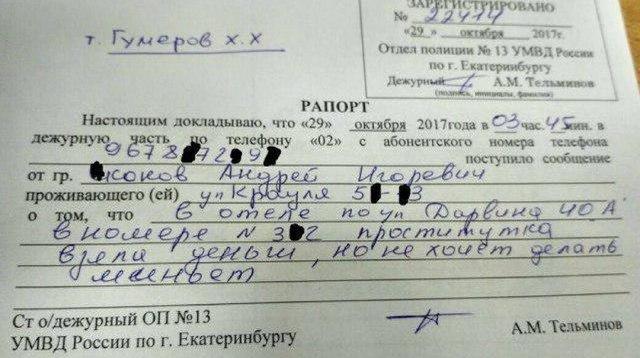 т. Гумеров Х.Х
ЗАРЕГИСТРИРОВАНО
№ 22414
«29 » октября 2017г.
Отдел полиции № 13 УМВД России
по г. Екатеринбургу
Дежурный А.М. Тельминов
(подпись, инициалы, фамилия)
РАПОРТ
Настоящим докладываю, что «29» октября 2017года в 03 час. 45 мин. в
дежурную часть по телефону «02» с абонентского номера телефона
9678 72 9 поступило сообщение
от гр. коков Андрей Игоревич
проживающего (ей) ул Крауля 5 - 3
о том, что в отеле по ул Дарвина 40 А
в номере N 3 2 проститутка
взяла деньги, но не хочет делать
миньет
Ст о/дежурный ОП №13
УМВД России по г. Екатеринбургу
А.М. Тельминов